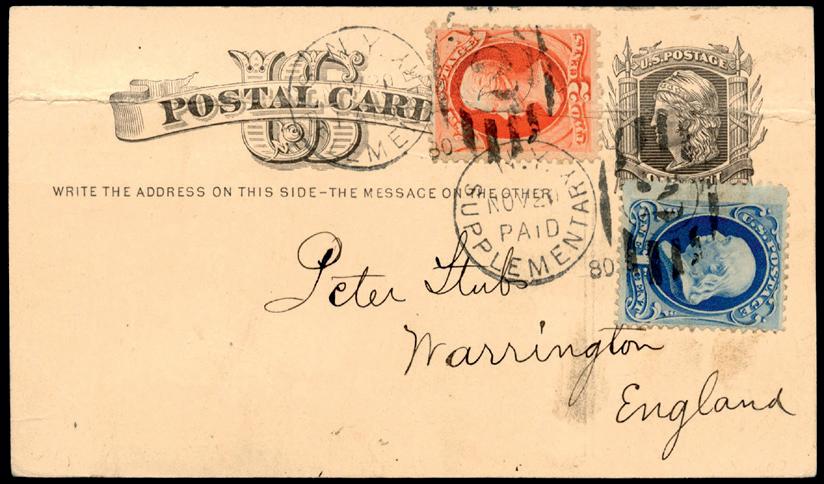 U.S. POSTAGE
POSTAL CARD
US
WRITE THE ADDRESS ON THIS SIDE-THE MESSAGE ON THE OTHER
N.Y.
SUPPLEMENTARY
NOV 20
PAID
80
80
U.S. POSTAGE
Peter Stubs
Warrington
England